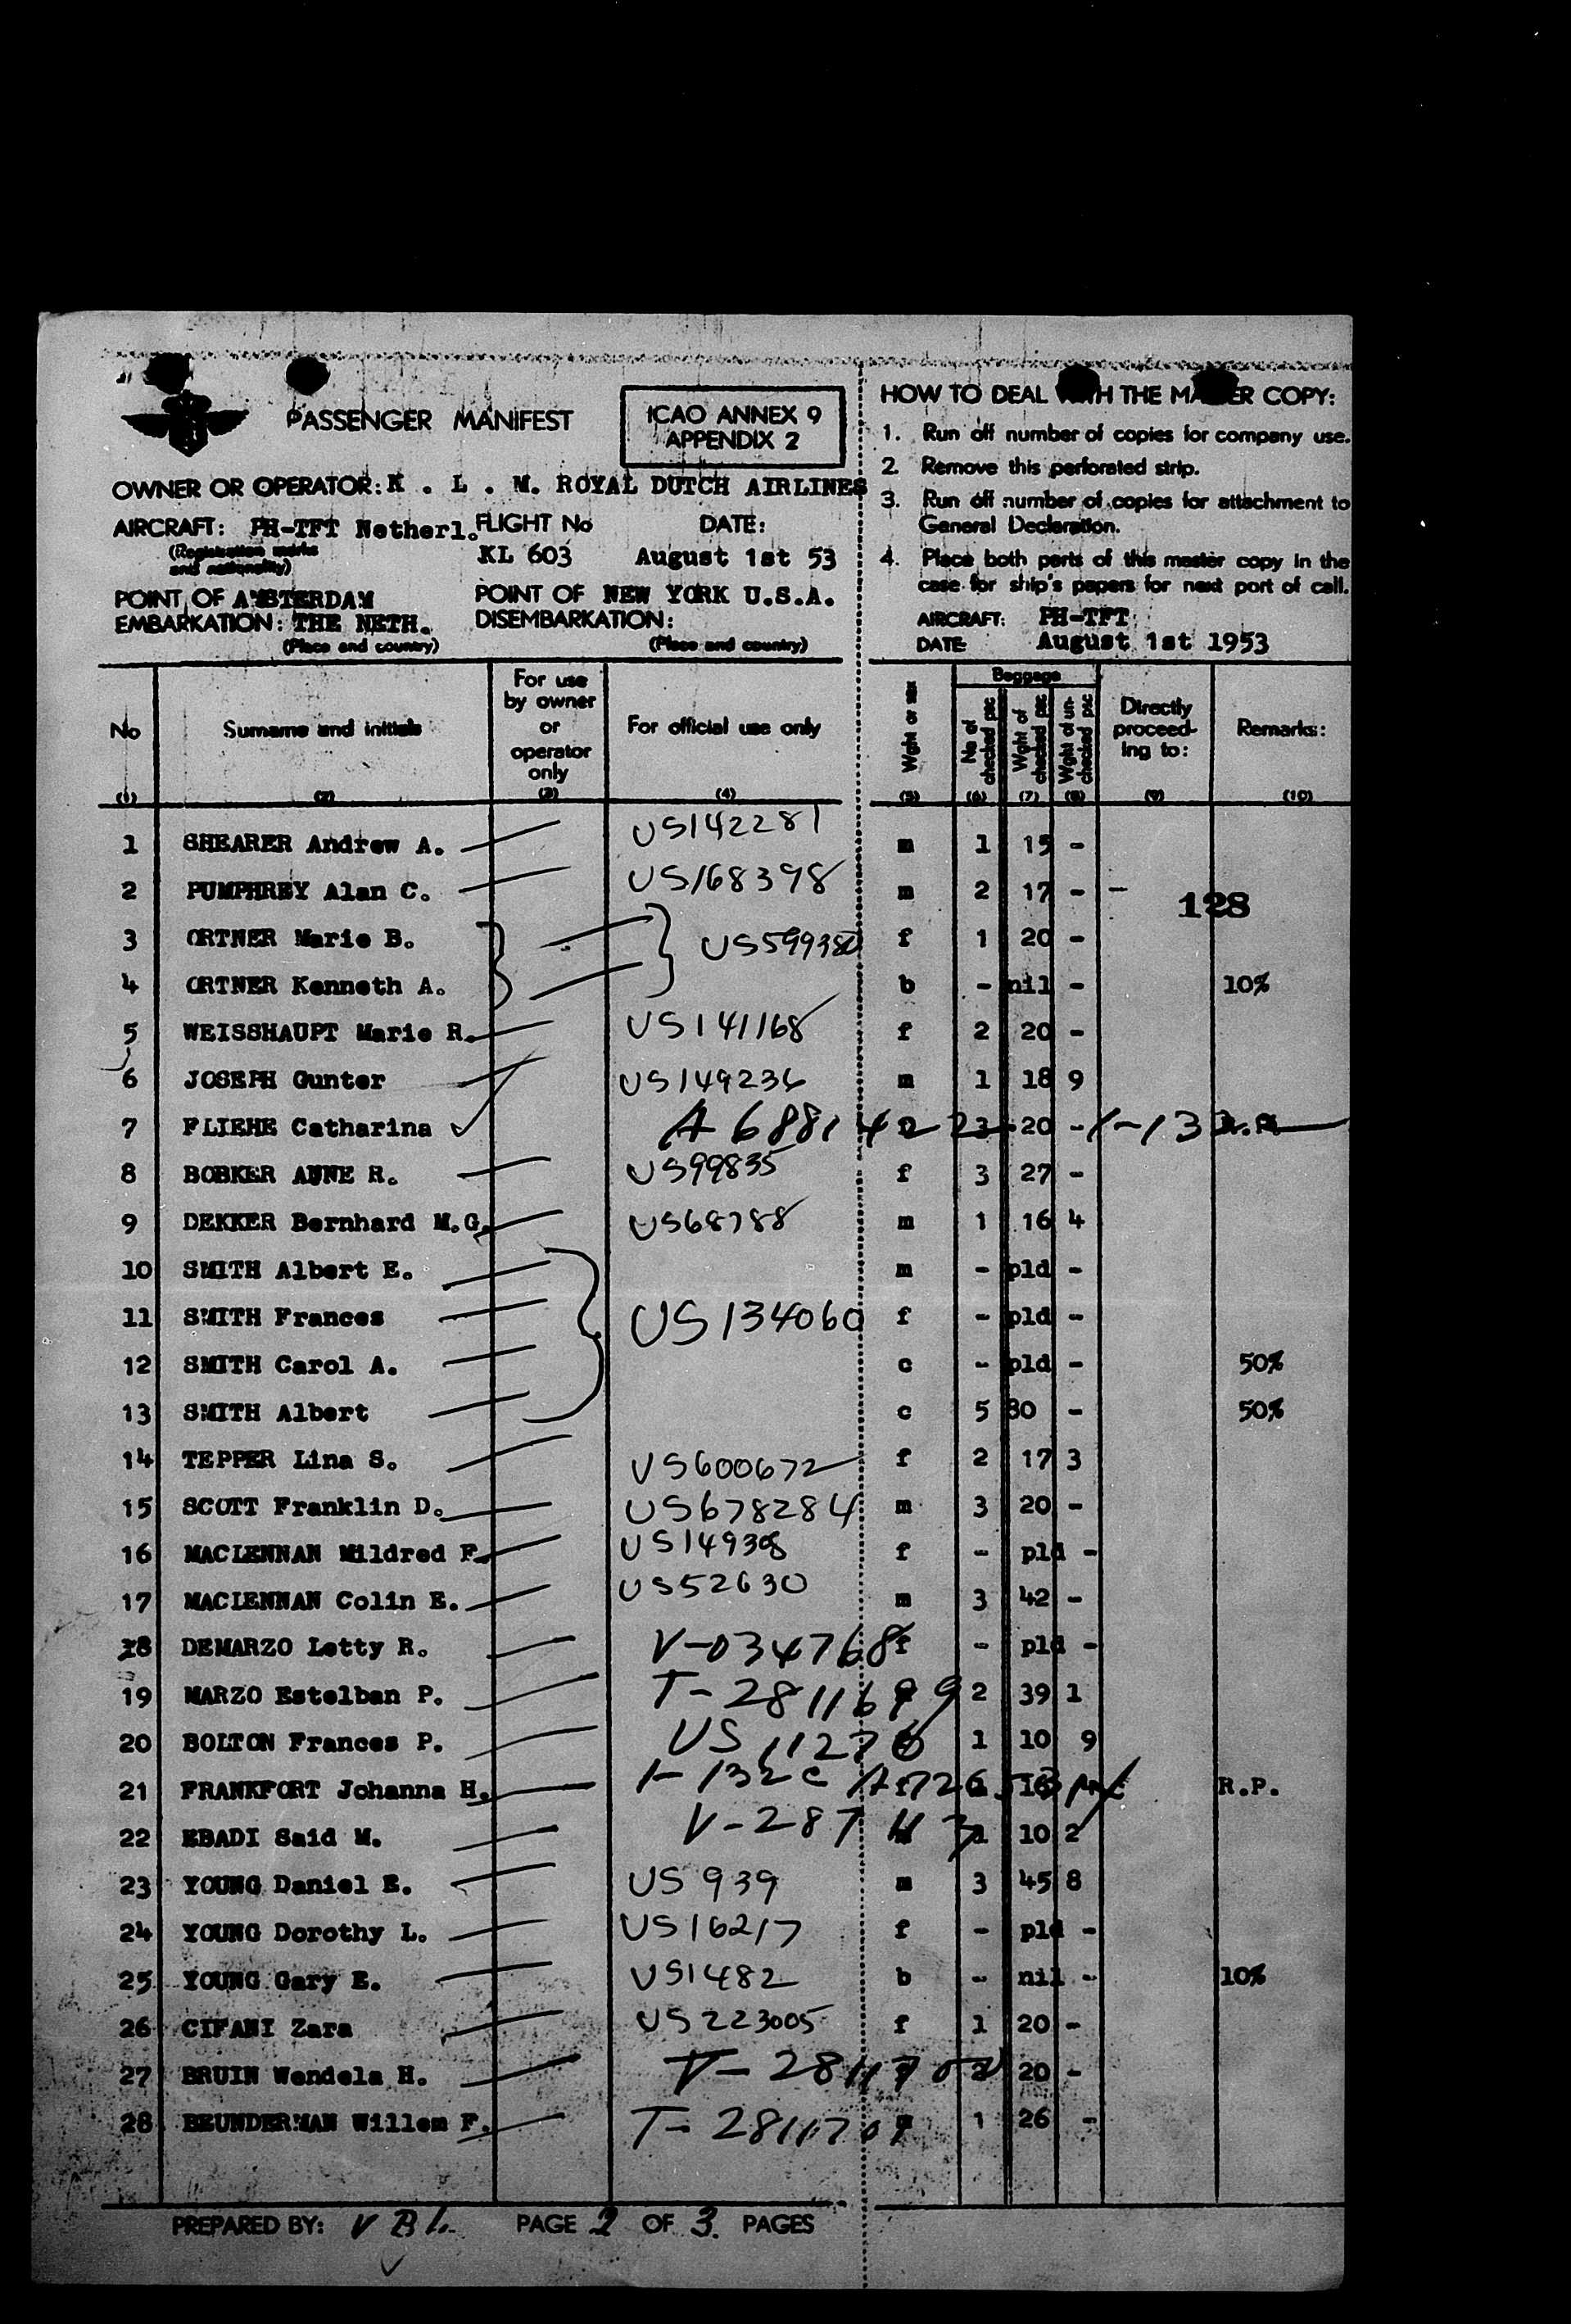 PASSENGER MANIFEST
ICAO ANNEX 9
APPENDIX 2
OWNER OR OPERATOR: K . L . M. ROYAL DUTCH AIRLINES
AIRCRAFT: PH-TFT Netherl. FLIGHT No DATE:
(Registration marks and nationality) KL 603 August 1st 53
POINT OF AMSTERDAM POINT OF NEW YORK U.S.A.
EMBARKATION: THE NETH. DISEMBARKATION:
(Place and country) (Place and country)
HOW TO DEAL WITH THE MASTER COPY:
1. Run off number of copies for company use.
2. Remove this perforated strip.
3. Run off number of copies for attachment to
General Declaration.
4. Place both parts of this master copy in the
case for ship's papers for next port of call.
AIRCRAFT: PH-TFT
DATE August 1st 1953
No Surname and initials For use by owner or operator only For official use only Wght or sex Baggage No of checked pec Wght of checked pec Wght of un-checked pec Directly proceed-ing to: Remarks:
(1) (2) (3) (4) (5) (6) (7) (8) (9) (10)
1 SHEARER Andrew A. US142281 m 1 15 -
2 PUMPHREY Alan C. US168398 m 2 17 - -
128
3 ORTNER Marie B. US599380 f 1 20 -
4 ORTNER Kenneth A. b - nil - 10%
5 WEISSHAUPT Marie R. US141168 f 2 20 -
6 JOSEPH Gunter US149236 m 1 18 9
7 FLIEHE Catharina A 6881 20 -
8 BOBKER ANNE R. US99835 f 3 27 -
9 DEKKER Bernhard M.G. US68788 m 1 16 4
10 SMITH Albert E. m - pld -
11 SMITH Frances US134060 f - pld -
12 SMITH Carol A. c - pld - 50%
13 SMITH Albert c 5 80 - 50%
14 TEPPER Lina S. US600672 f 2 17 3
15 SCOTT Franklin D. US678284 m 3 20 -
16 MACLENNAN Mildred F. US149308 f - pld -
17 MACLENNAN Colin E. US52630 m 3 42 -
18 DEMARZO Letty R. V-034768 f - pld -
19 MARZO Estelban P. T-2811699 2 39 1
20 BOLTON Frances P. US 11276 1 10 9
21 FRANKFORT Johanna H. R.P.
22 EBADI Said M. V-287 10 2
23 YOUNG Daniel E. US 939 m 3 45 8
24 YOUNG Dorothy L. US16217 f - pld -
25 YOUNG Gary E. US1482 b - nil - 10%
26 CIFANI Zara US223005 f 1 20 -
27 BRUIN Wendela H. 20 -
28 BEUNDERMAN Willem F. T-2811701 1 26 -
PREPARED BY: PAGE 2 OF 3. PAGES